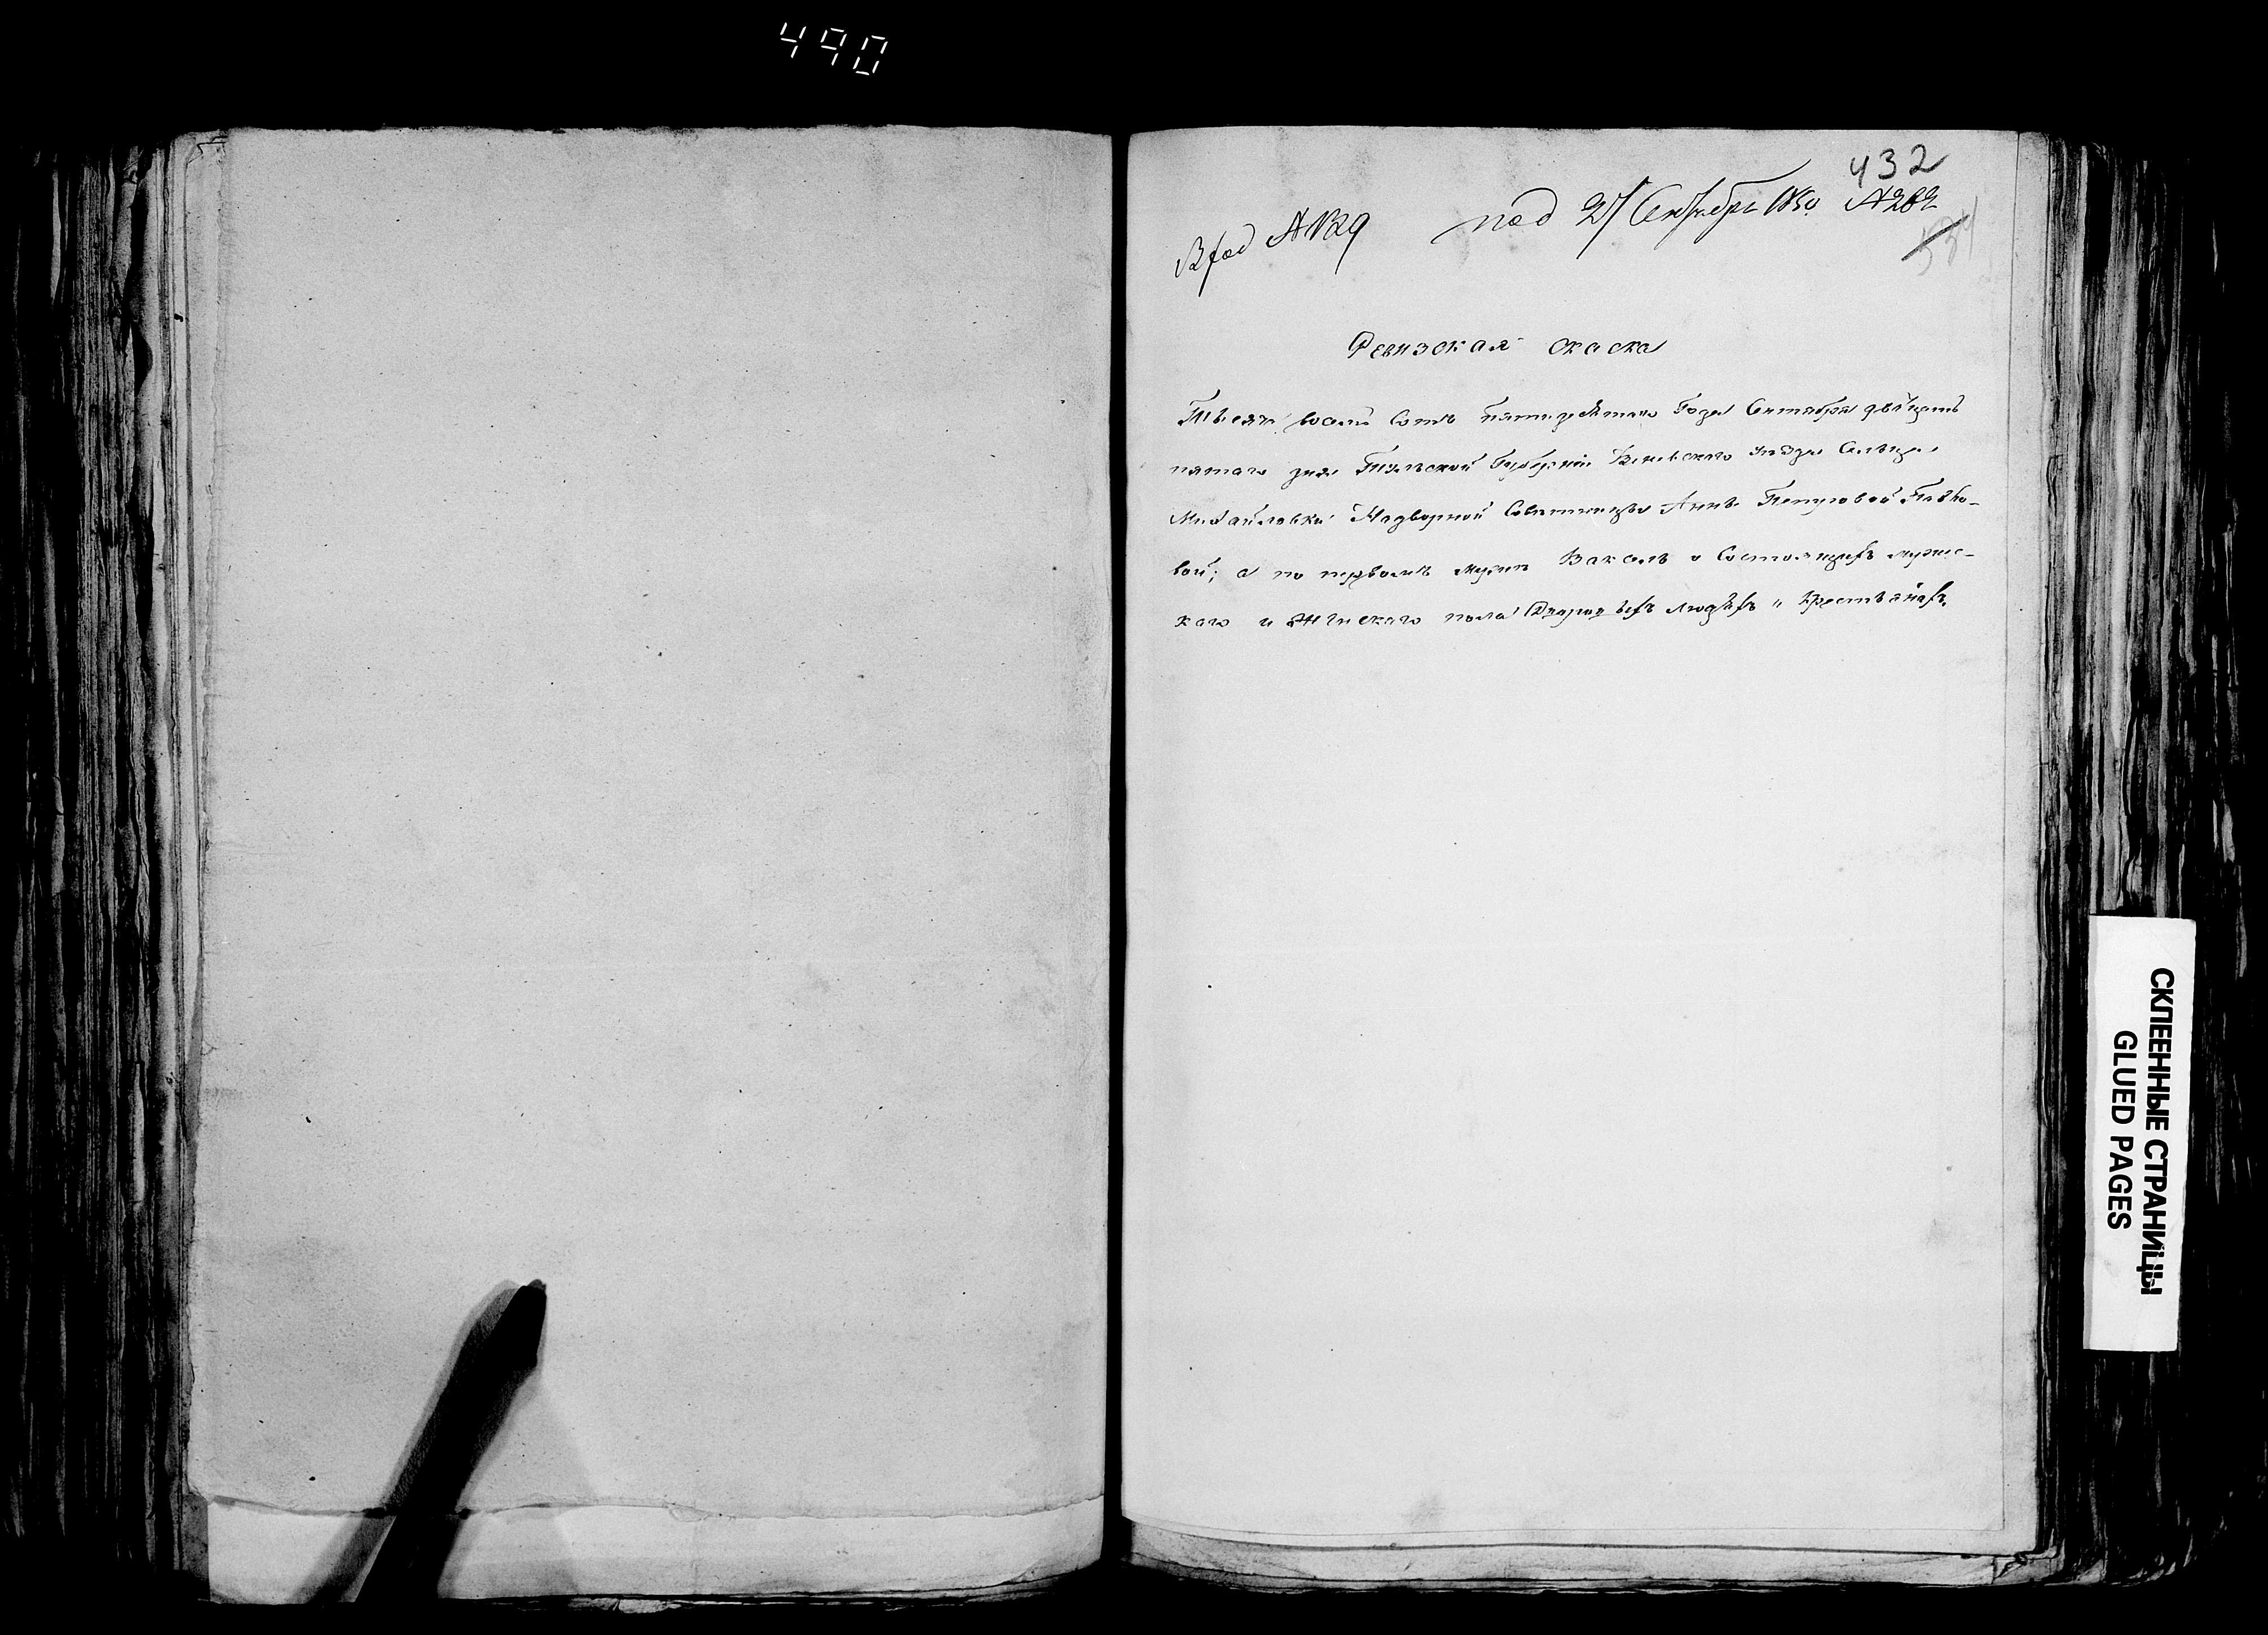 490
432
Вход № 1329 под 27 Сентября 1850 № 282
Ревизская скаска
Тысяча восемь Сотъ пятидесятаго Года Сентября двадцать
пятаго дня Тульской Губерніи Веневского уѣзда Сельца
Михайловки Надворной Советницы Анны Петровой
вой; а по первомъ мужѣ о Состоящихъ мужес-
каго и Женскаго пола Дворовыхъ людяхъ и Крестьянахъ
СКЛЕЕННЫЕ СТРАНИЦЫ
GLUED PAGES